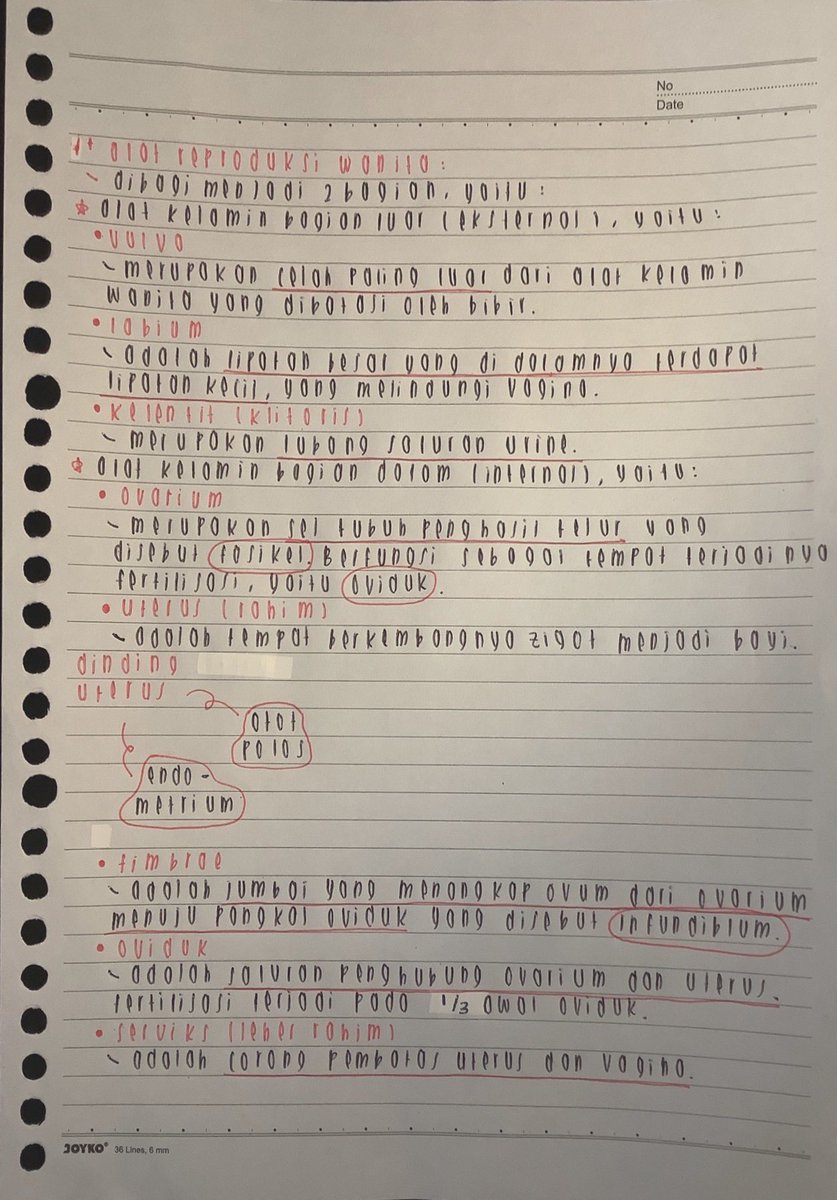 No
Date
1+ alat reproduksi wanita :
~ dibagi menjadi 2 bagian, yaitu :
☆ alat kelamin bagian luar (eksternal), yaitu :
• vulva
~ merupakan celah paling luar dari alat kelamin
wanita yang dibatasi oleh bibir.
• labium
~ adalah lipatan besar yang di dalamnya terdapat
lipatan kecil, yang melindungi vagina.
• kelentit (klitoris)
~ merupakan lubang saluran urine.
☆ alat kelamin bagian dalam (internal), yaitu :
• ovarium
~ merupakan sel tubuh penghasil telur yang
disebut fosikel. Berfungsi sebagai tempat terjadinya
fertilisasi, yaitu oviduk.
• uterus (rahim)
~ adalah tempat berkembangnya zigot menjadi bayi.
dinding
uterus
otot
polos
endo-
metrium
• fimbrae
~ adalah jumbai yang menangkap ovum dari ovarium
menuju pangkal oviduk yang disebut infundiblum.
• oviduk
~ adalah saluran penghubung ovarium dan uterus.
fertilisasi terjadi pada 1/3 awal oviduk.
• serviks (leher rahim)
~ adalah corong pembatas uterus dan vagina.
JOYKO® 36 Lines, 6 mm